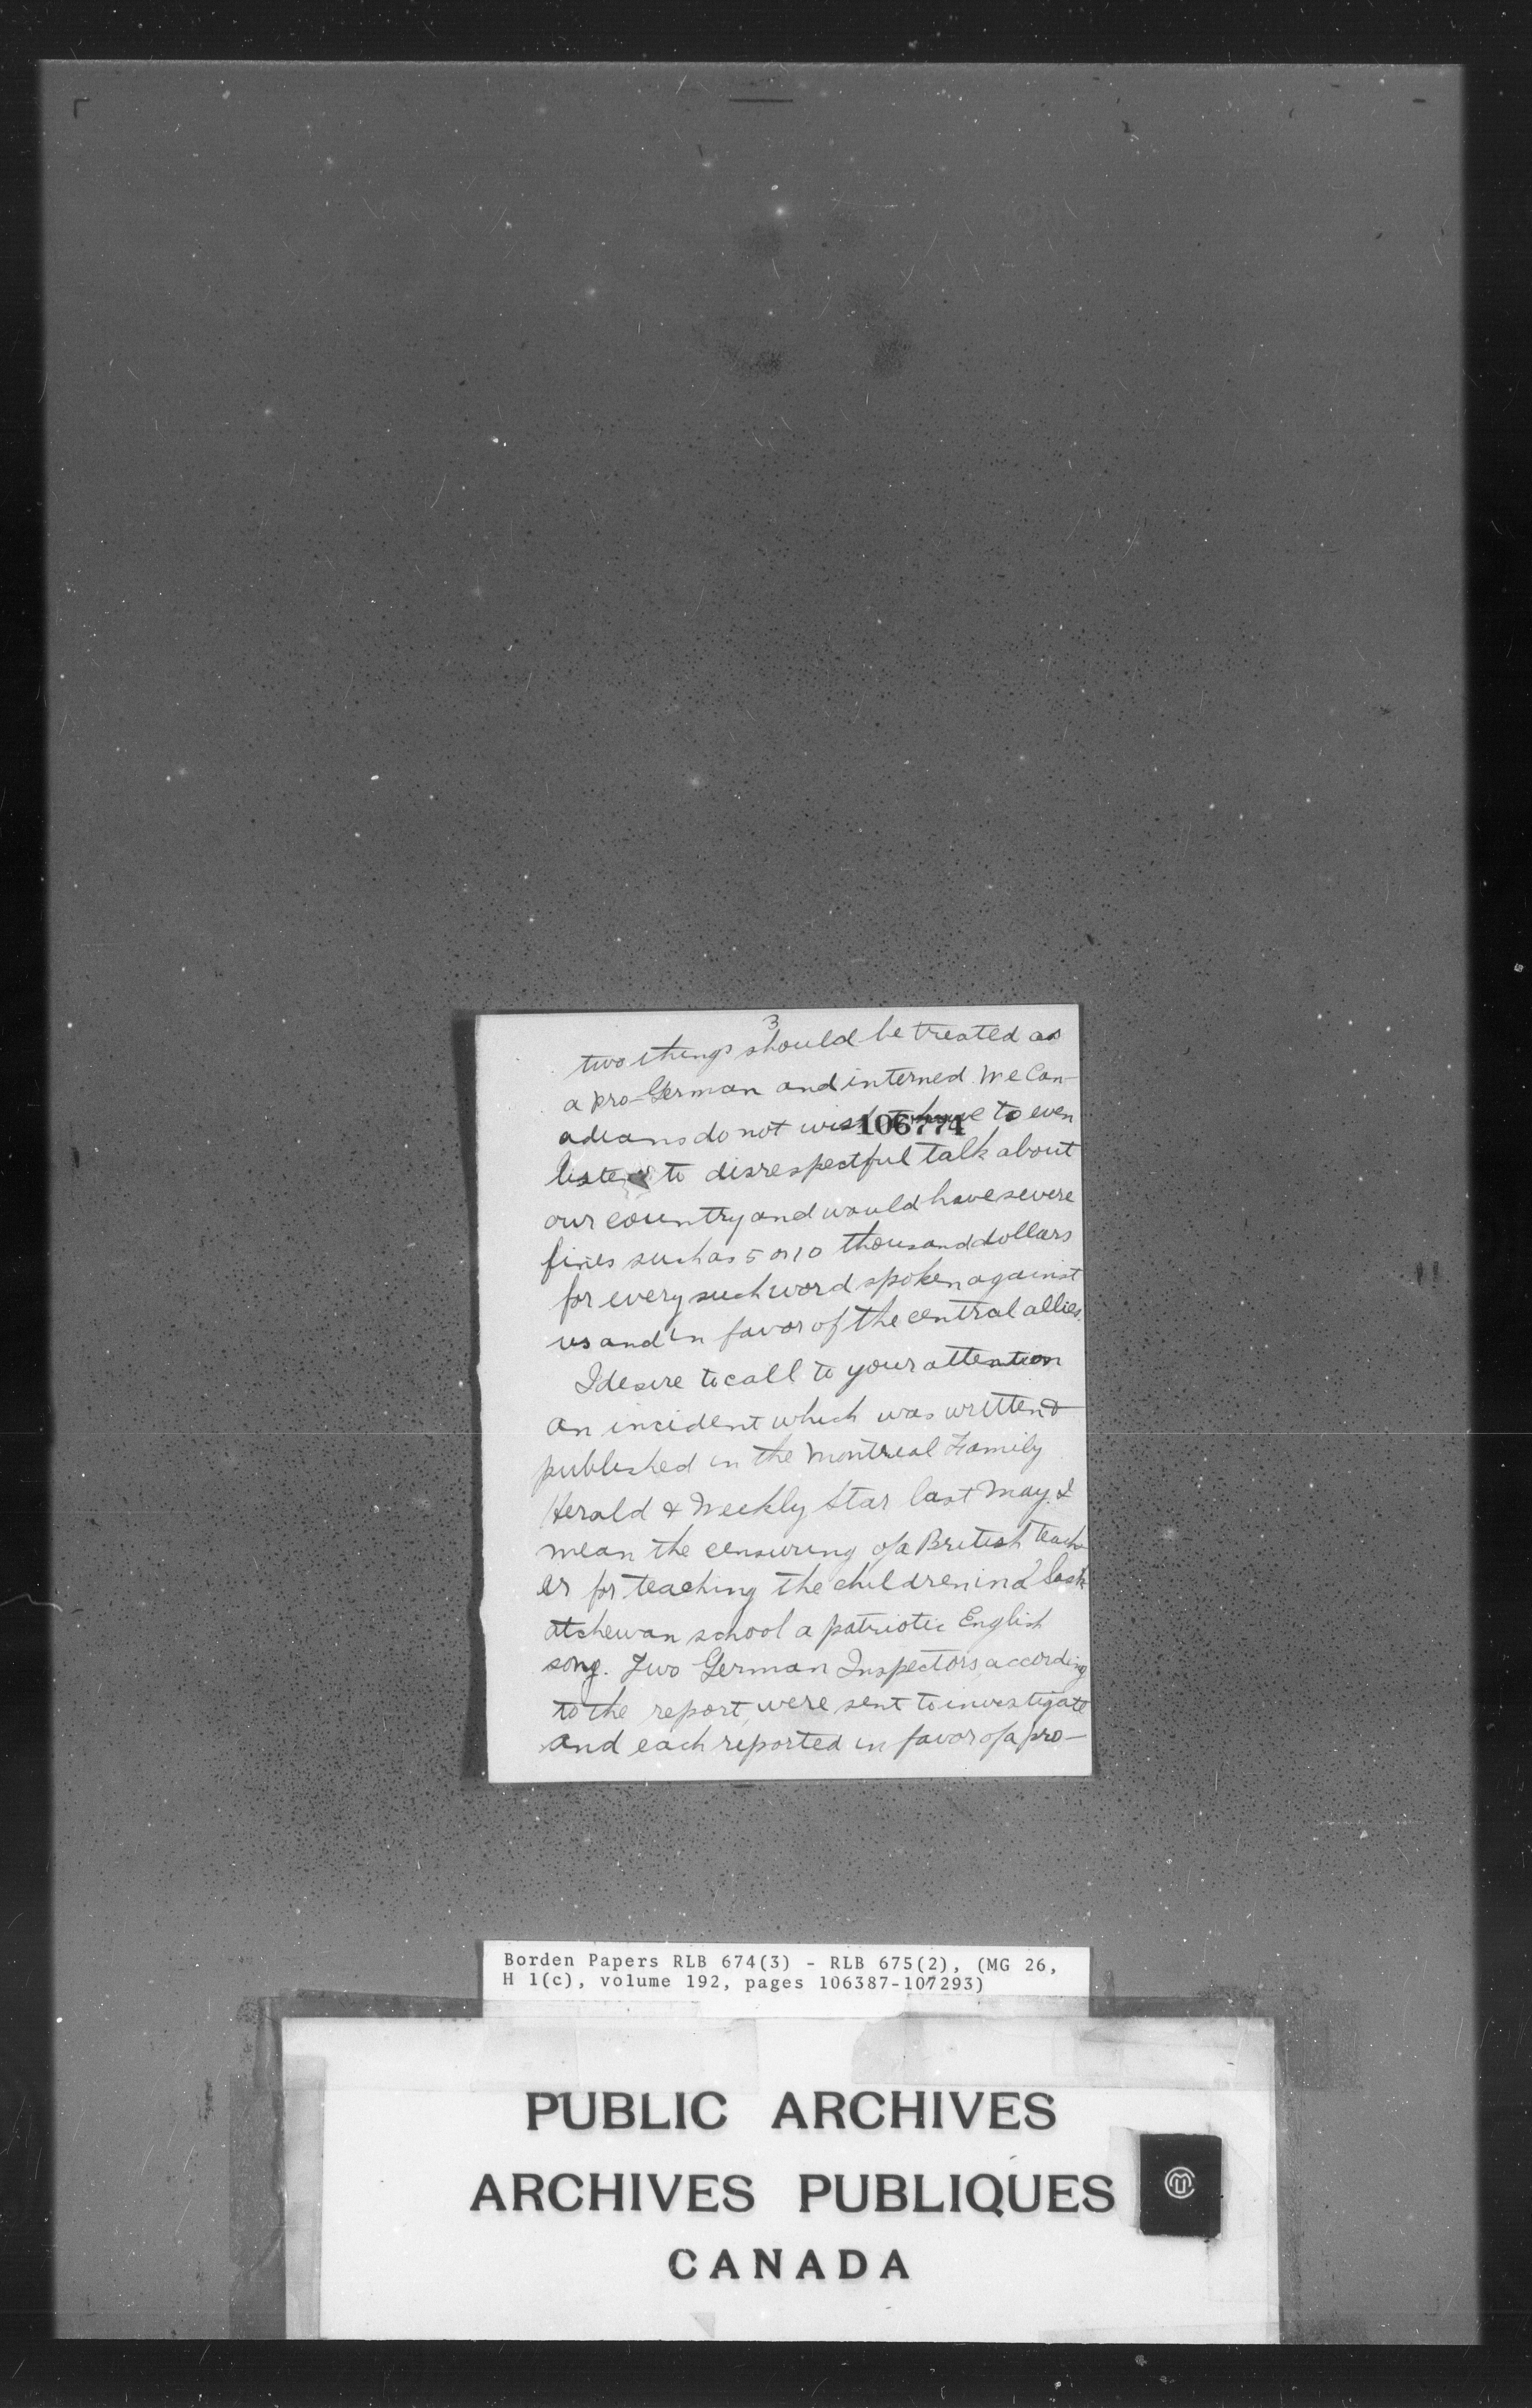 3
two things should be treated as
a pro-German and interned. We Can-
adians do not wish to have to even
106774
listen to disrespectful talk about
our country and would have severe
fines such as 5 or 10 thousand dollars
for every such word spoken against
us and in favor of the central allies.
I desire to call to your attention
an incident which was written &
published in the Montreal Family
Herald & Weekly Star last May. I
mean the censuring of a British teach-
er for teaching the children in a Sask-
atchewan school a patriotic English
song. Two German Inspectors, according
to the report, were sent to investigate
and each reported in favor of a pro-
Borden Papers RLB 674(3) - RLB 675(2), (MG 26,
H 1(c), volume 192, pages 106387-107293)
PUBLIC ARCHIVES
ARCHIVES PUBLIQUES
CANADA